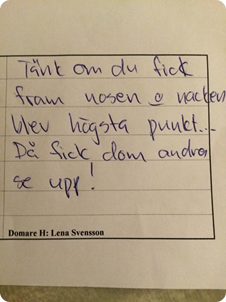 Tänk om du fick
fram nosen o nacken
blev högsta punkt...
Då fick dom andra
se upp!
Domare H: Lena Svensson